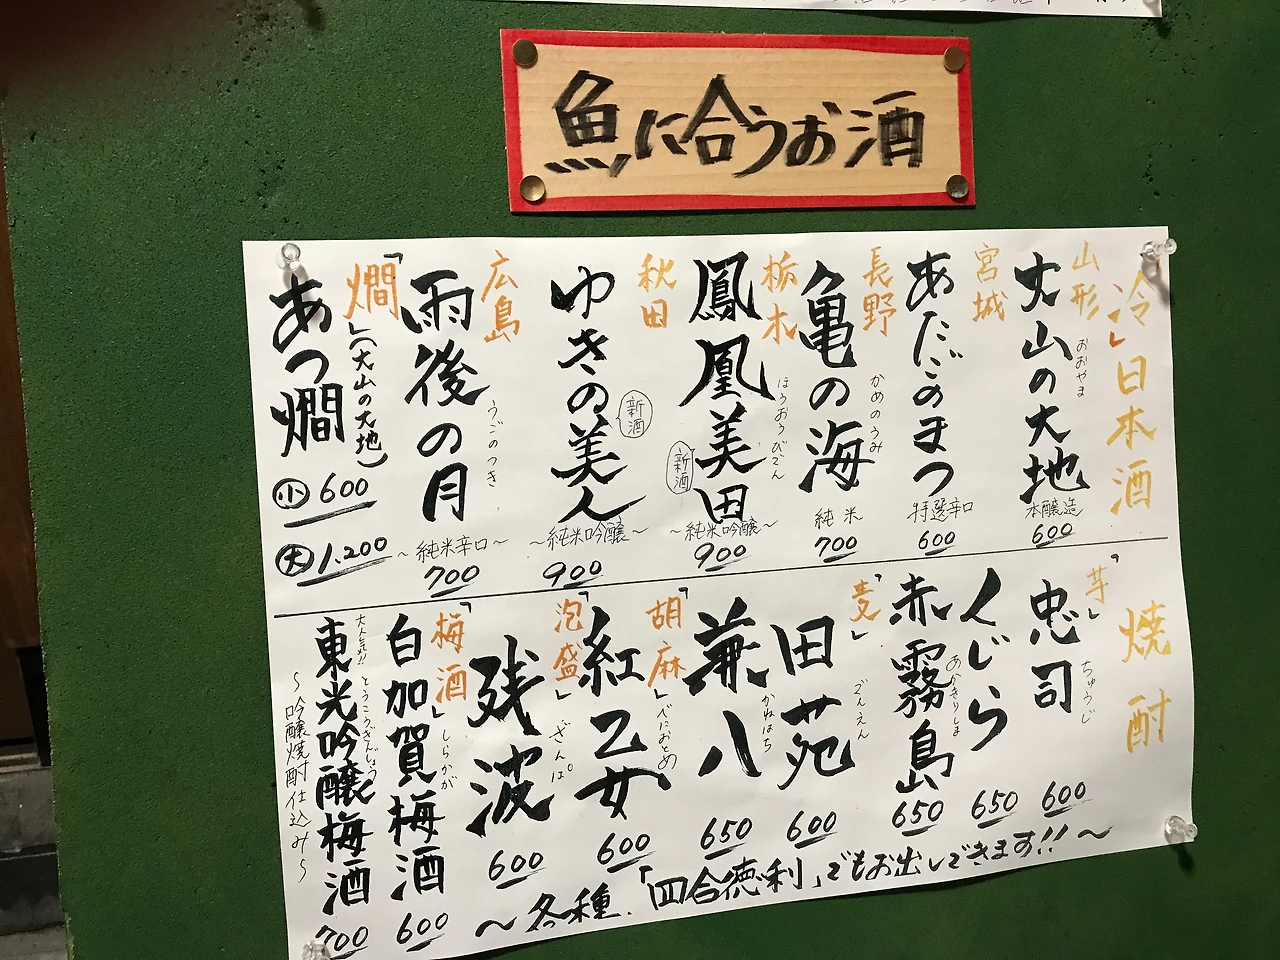 魚に合うお酒
「冷」日本酒
山形
大山の大地
おおやま
本醸造
600
宮城
あたごのまつ
特選辛口
600
長野
亀の海
かめのうみ
純米
700
栃木
鳳凰美田
ほうおうびでん
新酒
～純米吟醸～
900
秋田
ゆきの美人
新酒
～純米吟醸～
900
広島
雨後の月
うごのつき
～純米辛口～
700
「燗」(大山の大地)
あつ燗
小 600
大 1.200
焼酎
「芋」
忠司
ちゅうじ
600
くじら
650
赤霧島
あかきりしま
650
「麦」
田苑
でんえん
600
兼八
かねはち
650
「胡麻」
紅乙女
べにおとめ
600
「泡盛」
残波
ざんぱ
600
「梅酒」
白加賀梅酒
しらかが
600
大人気!!
東光吟醸梅酒
とうこうぎんじょう
～吟醸焼酎仕込み～
700
～各種「四合徳利」でもお出しできます!!～